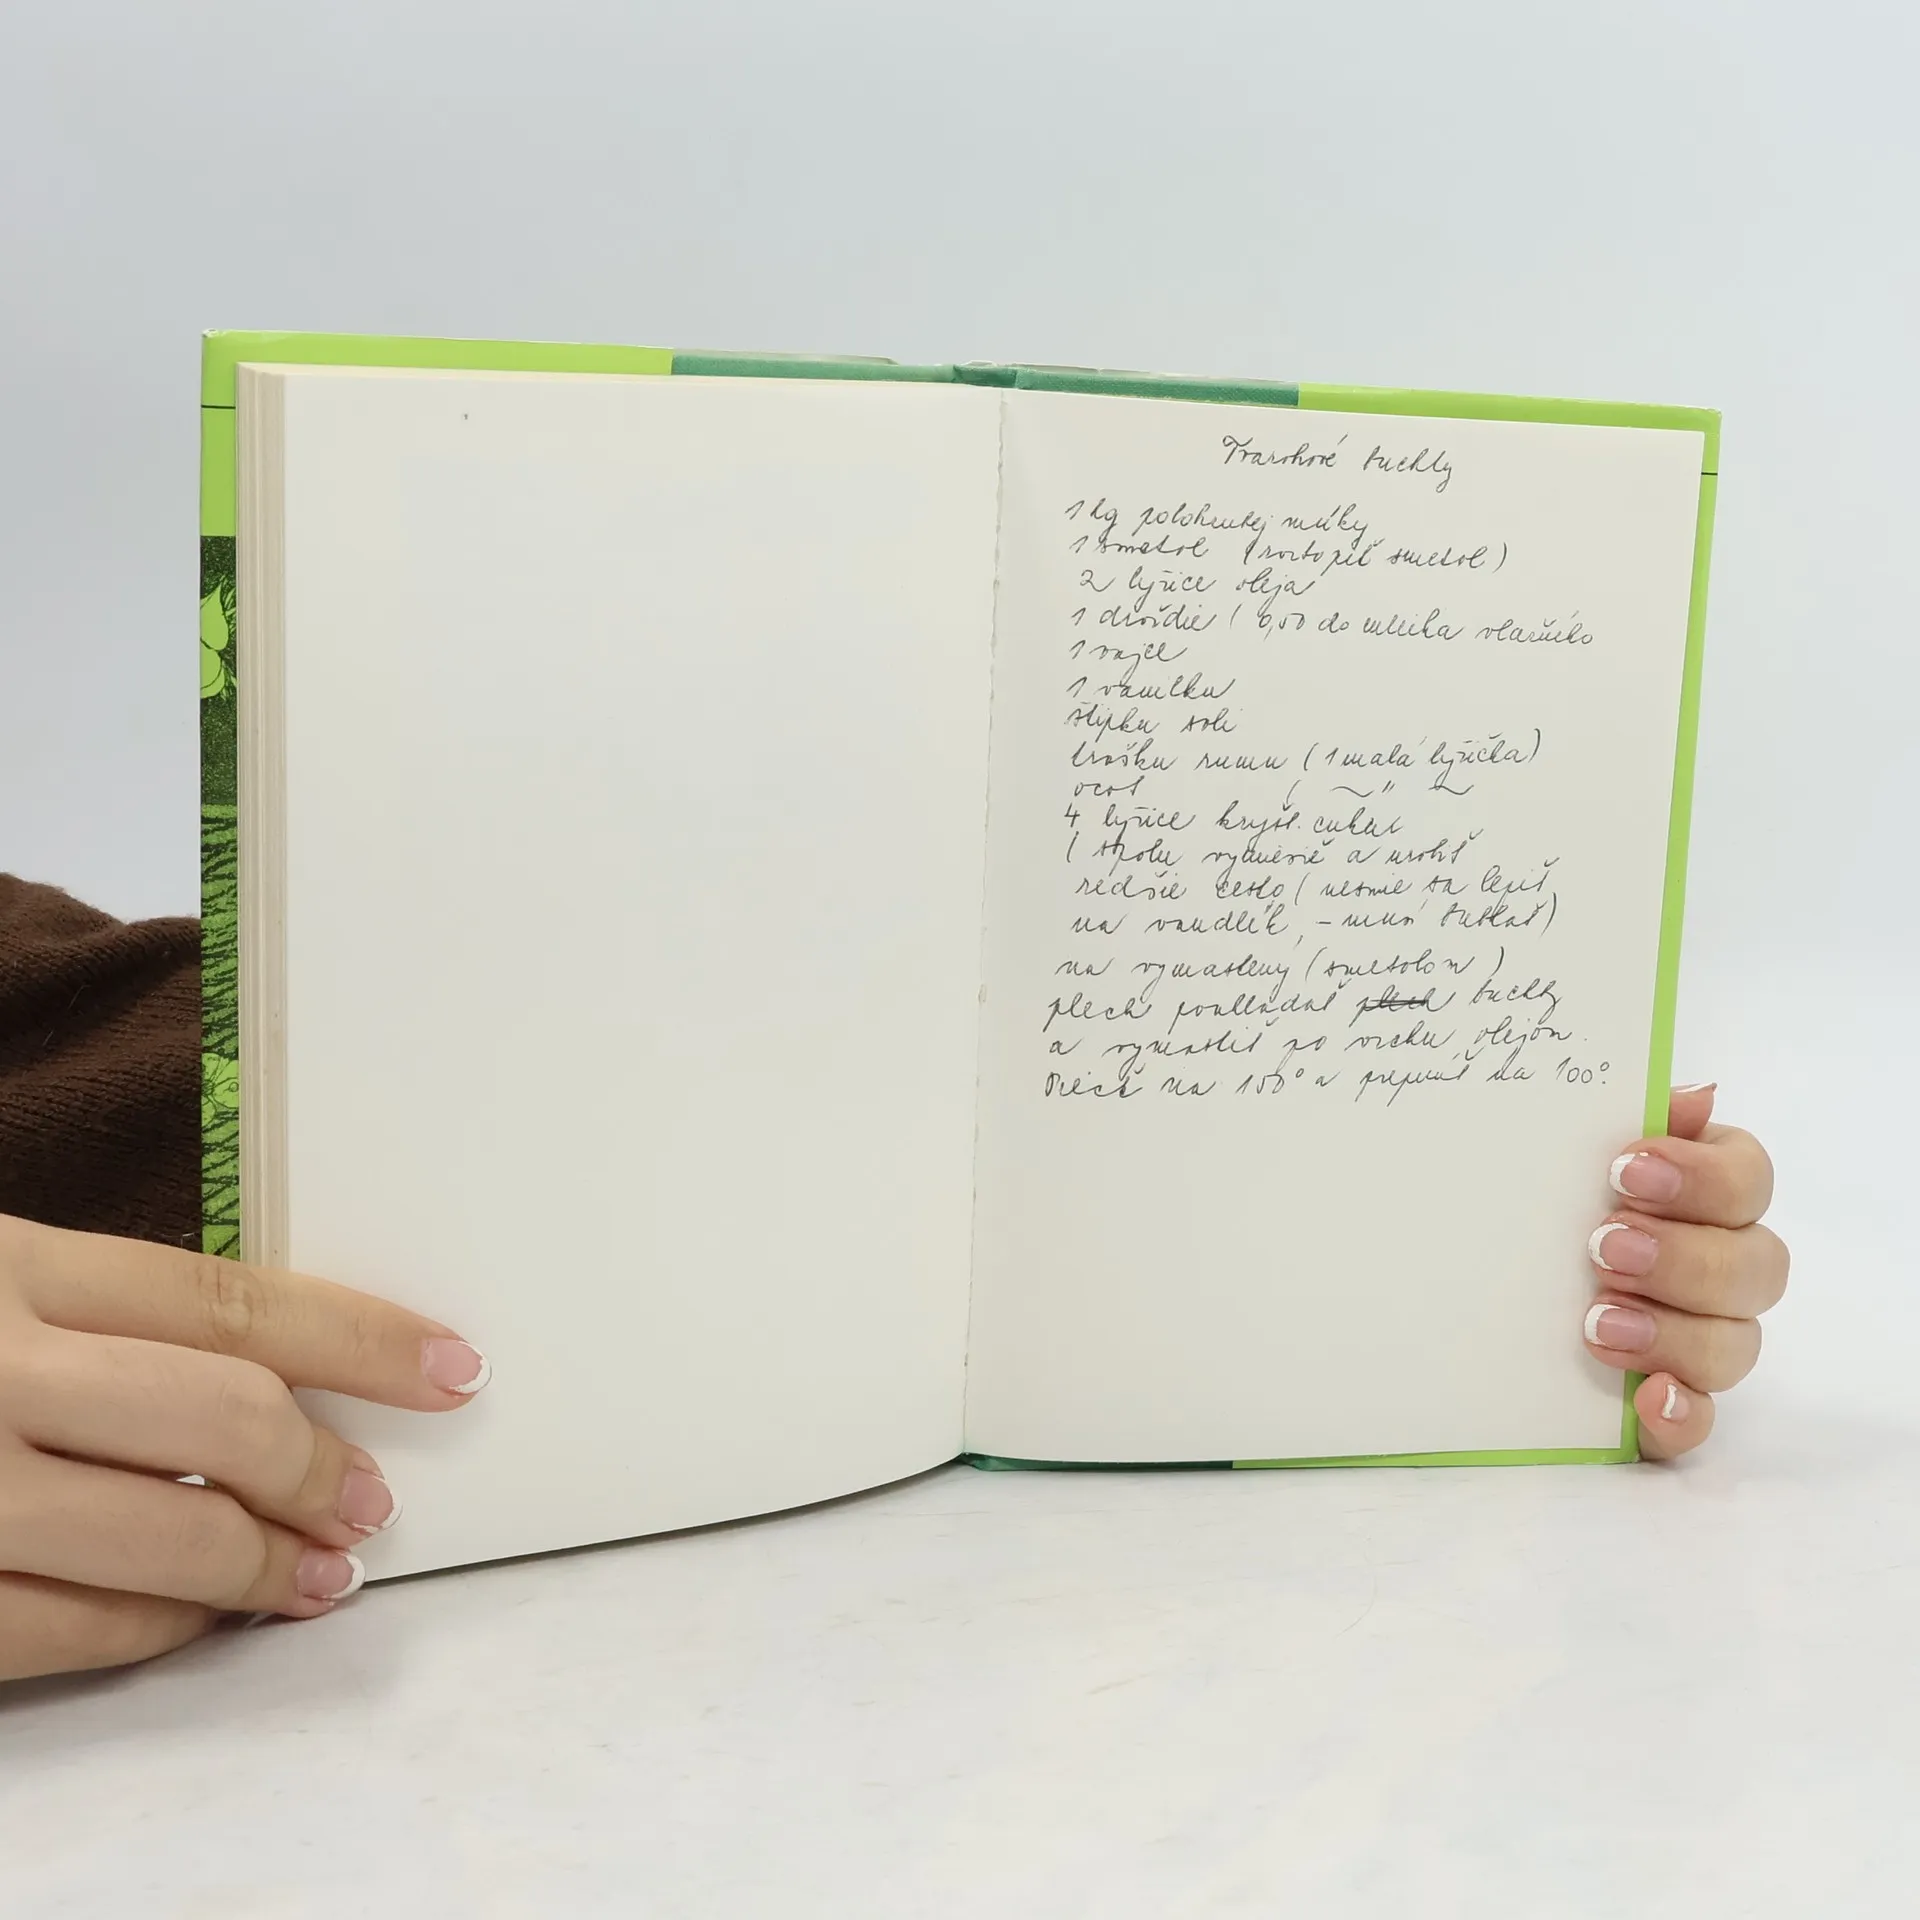 Tvarohové buchty
1 kg polohrubej múky
1 smetol (roztopiť smetol)
2 lyžice oleja
1 droždie ( 0,50 do mlieka vlažného
1 vajce
1 vanilku
štipku soli
trošku rumu (1 malá lyžička)
ocot ( ~ " ~
4 lyžice kryšt. cukru
( spolu vymiesiť a urobiť
redšie cesto ( nesmie sa lepiť
na vandlík, - musí bublať)
na vymastený (smetolom)
plech poukladať plech buchty
a vymastiť po vrchu olejom.
Piecť na 150° a prepnúť na 100°.